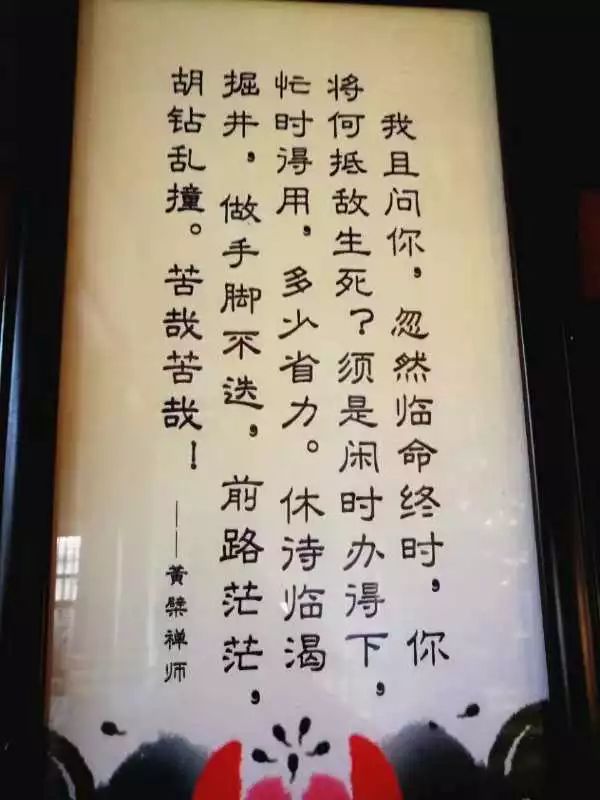 我且问你，忽然临命终时，你
将何抵敌生死？须是闲时办得下，
忙时得用，多少省力。休待临渴
掘井，做手脚不迭，前路茫茫，
胡钻乱撞。苦哉苦哉！
——黄檗禅师